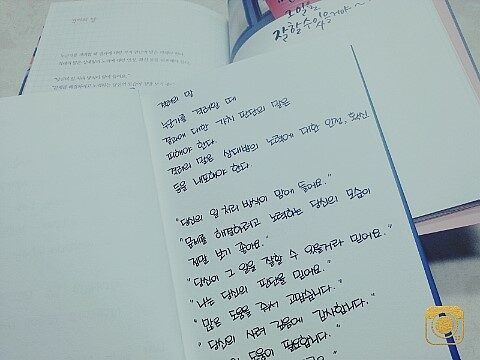 격려의 말
오늘도
잘할 수 있을거야~
격려의 말
누군가를 격려할 때
결과에 대한 가치 판단의 말은
피해야 한다.
격려의 말은 상대방의 노력에 대한 인정, 확신
등을 내포해야 한다.
"당신의 일 처리 방식이 맘에 들어요."
"문제를 해결하려고 노력하는 당신의 모습이
정말 보기 좋아요."
"당신이 그 일을 잘할 수 있을거라 믿어요."
"나는 당신의 판단을 믿어요."
"많은 도움을 줘서 고맙습니다."
"당신의 사려 깊음에 감사합니다."
도움이 필요합니다."